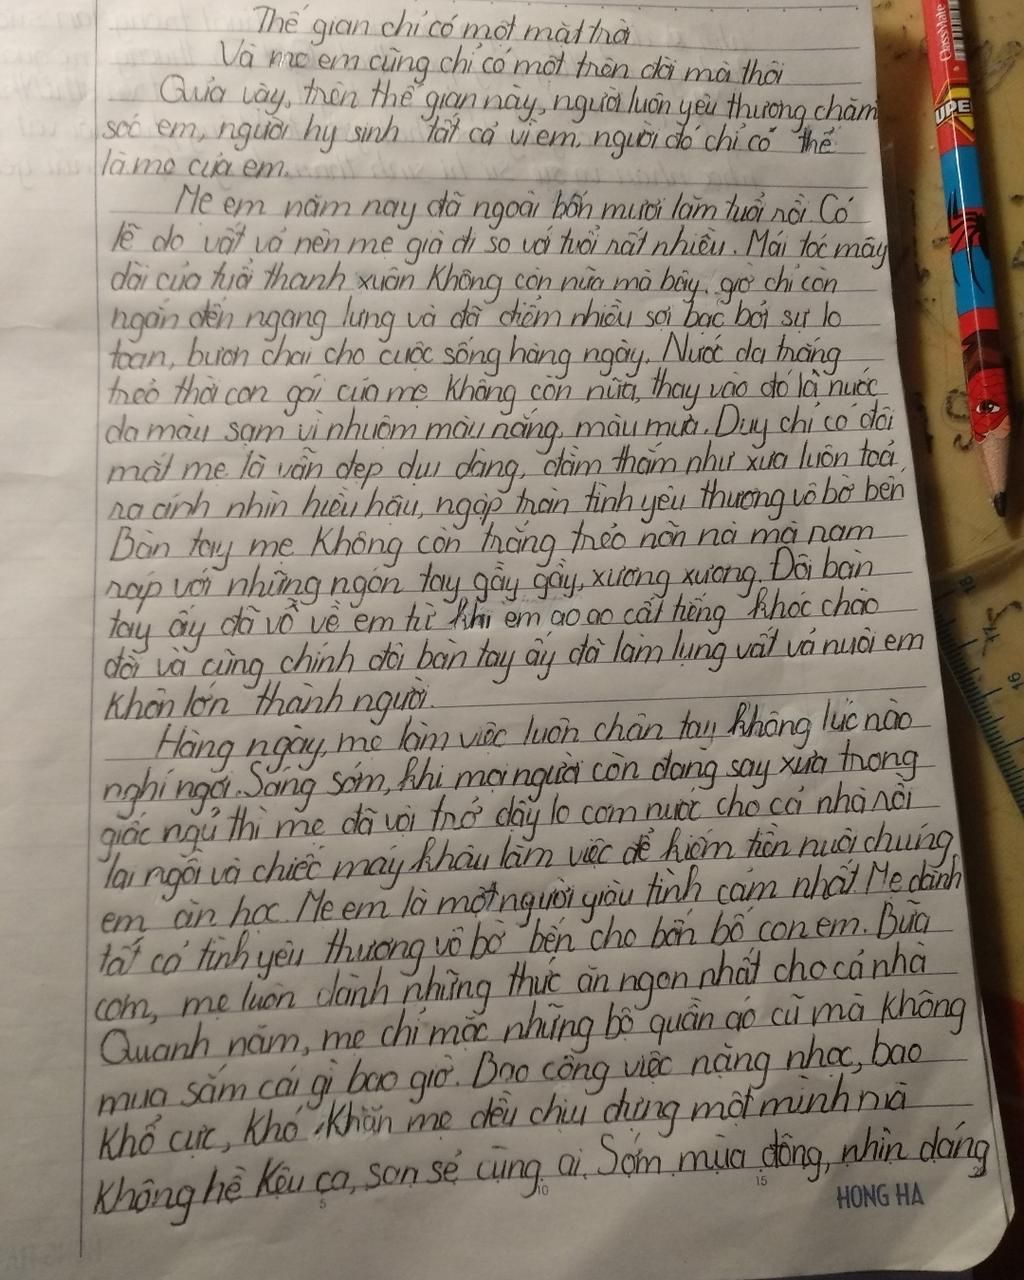 Thế gian chỉ có một mặt trời
Và mẹ em cũng chỉ có một trên đời mà thôi
Qủa vậy, trên thế gian này, người luôn yêu thương chăm
sóc em, người hy sinh tất cả vì em, người đó chỉ có thể
là mẹ của em.
Mẹ em năm nay đã ngoài bốn mươi lăm tuổi rồi. Có
lẽ do vất vả nên mẹ già đi so với tuổi rất nhiều. Mái tóc mây
dài của tuổi thanh xuân không còn nữa mà bây giờ chỉ còn
ngắn đến ngang lưng và đã điểm nhiều sợi bạc bởi sự lo
toan, bươn chải cho cuộc sống hàng ngày. Nước da trắng
trẻo thời con gái của mẹ không còn nữa, thay vào đó là nước
da màu sạm vì nhuộm màu nắng, màu mưa. Duy chỉ có đôi
mắt mẹ là vẫn đẹp dịu dàng, đằm thắm như xưa luôn toả
ra ánh nhìn hiền hậu, ngập tràn tình yêu thương vô bờ bến
Bàn tay mẹ không còn trắng trẻo nõn nà mà ram
ráp với những ngón tay gầy gầy, xương xương. Đôi bàn
tay ấy đã vỗ về em từ khi em oa oa cất tiếng khóc chào
đời và cũng chính đôi bàn tay ấy đã làm lụng vất vả nuôi em
khôn lớn thành người.
Hàng ngày, mẹ làm việc luôn chân tay không lúc nào
nghỉ ngơi. Sáng sớm, khi mọi người còn đang say xưa trong
giấc ngủ thì mẹ đã vội trở dậy lo cơm nước cho cả nhà rồi
lại ngồi và chiếc máy khâu làm việc để kiếm tiền nuôi chúng
em ăn học. Mẹ em là một người giàu tình cảm nhất Mẹ dành
tất cả tình yêu thương vô bờ bến cho bốn bố con em. Bữa
cơm, mẹ luôn dành những thức ăn ngon nhất cho cả nhà
Quanh năm, mẹ chỉ mặc những bộ quần áo cũ mà không
mua sắm cái gì bao giờ. Bao công việc nặng nhọc, bao
khổ cực, khó khăn mẹ đều chịu đựng một mình mà
không hề kêu ca, san sẻ cùng ai. Sớm mùa đông, nhìn dáng
5 10 15
HONG HA
ClassMate
UPE